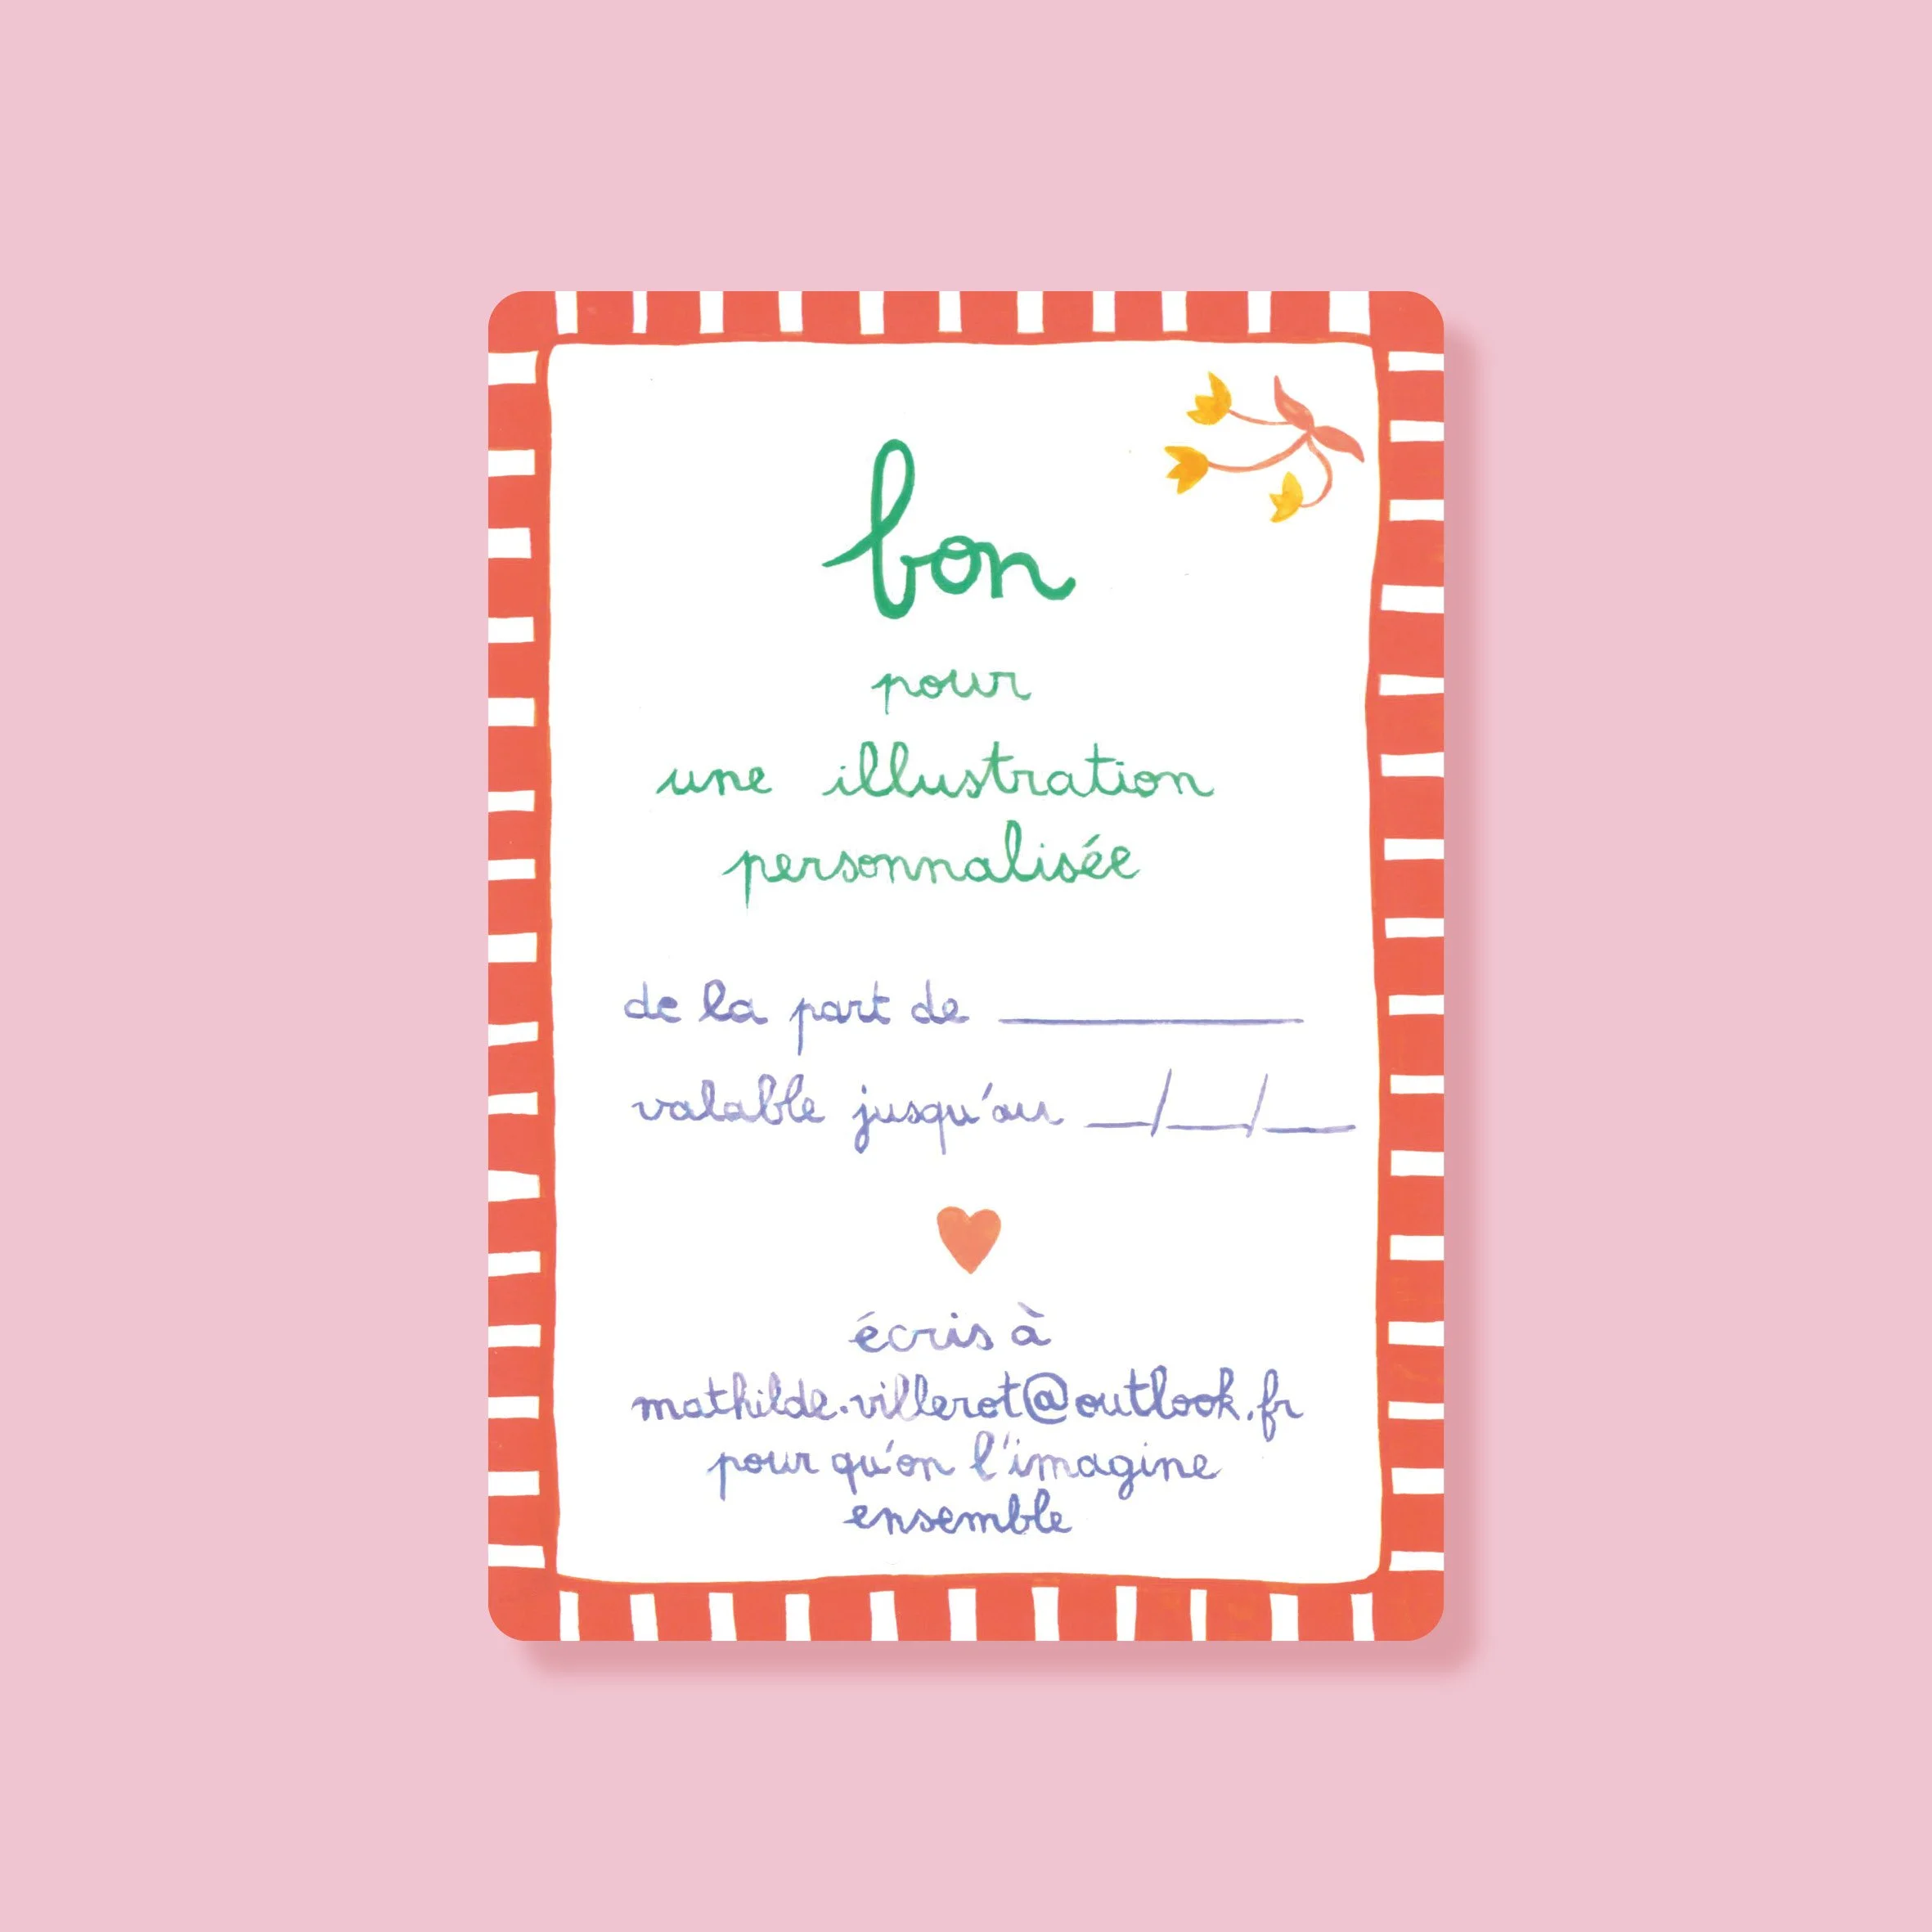 bon
pour
une illustration
personnalisée
de la part de
valable jusqu'au __/__/__
écris à
mathilde.villerot@outlook.fr
pour qu'on l'imagine
ensemble